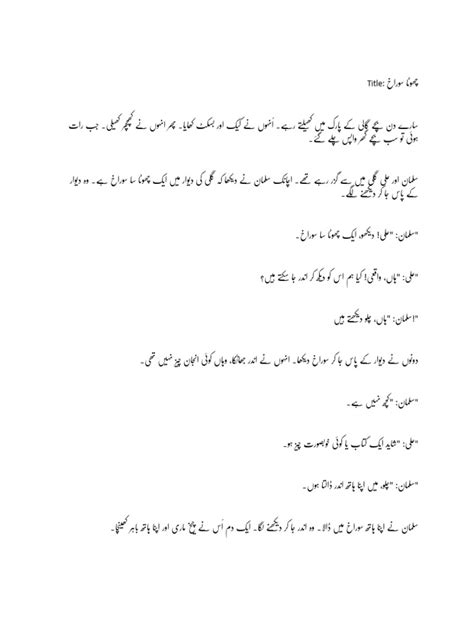 Title: چھوٹا سوراخ
سارے دن بچے گلی کے پارک میں کھیلتے رہے۔ اُنہوں نے کیک اور بسکٹ کھایا۔ پھر انہوں نے کھیلی۔ جب رات
ہوئی تو سب بچے گھر واپس چلے گئے۔
سلمان اور علی گلی میں سے گزر رہے تھے۔ اچانک سلمان نے دیکھا کہ گلی کی دیوار میں ایک چھوٹا سا سوراخ ہے۔ وہ دیوار
کے پاس جا کر دیکھنے لگے۔
"سلمان: "علی! دیکھو، ایک چھوٹا سا سوراخ۔
"علی: "ہاں، واقعی! کیا ہم اس کو دیکھ کر اندر جا سکتے ہیں؟
"سلمان: "ہاں، چلو دیکھتے ہیں
دونوں نے دیوار کے پاس جا کر سوراخ دیکھا۔ انہوں نے اندر جھانکا، وہاں کوئی انجان چیز نہیں تھی۔
"سلمان: "کچھ نہیں ہے۔
"علی: "شاید ایک کتاب یا کوئی خوبصورت چیز ہو۔
"سلمان: "چلو، میں اپنا ہاتھ اندر ڈالتا ہوں۔
سلمان نے اپنا ہاتھ سوراخ میں ڈالا۔ وہ اندر جا کر دیکھنے لگا۔ ایک دم اُس نے چیخ ماری اور اپنا ہاتھ باہر کھینچا۔